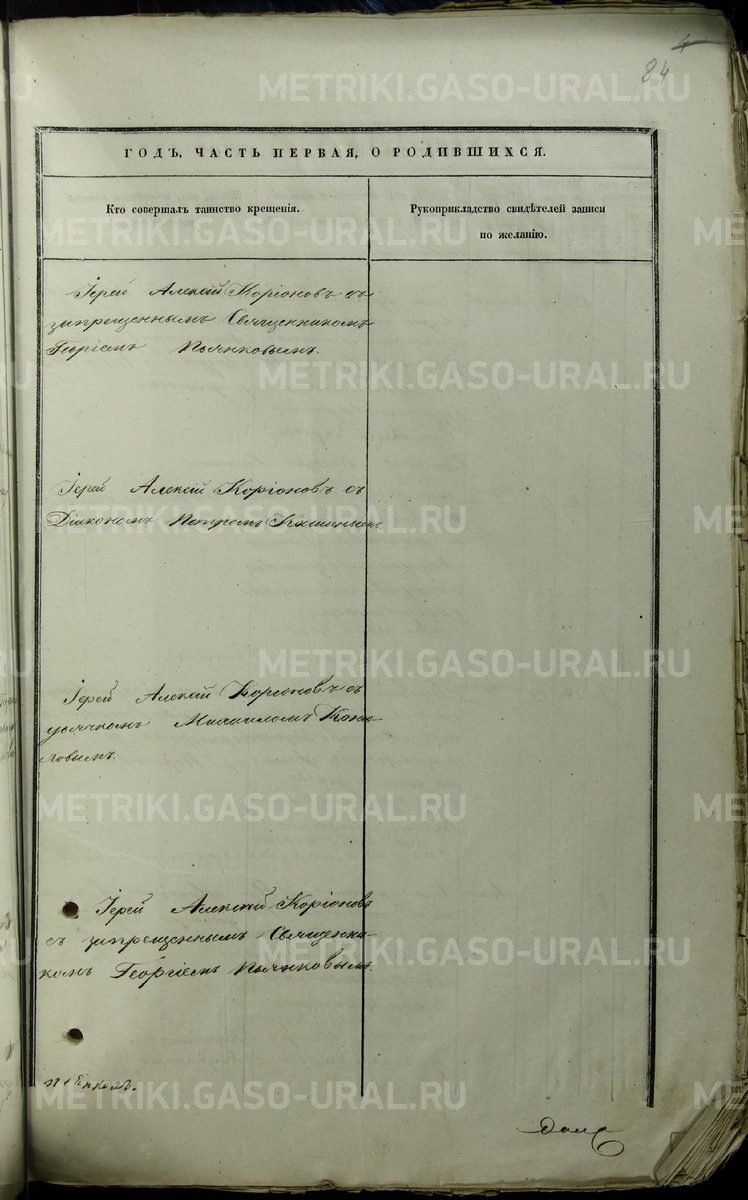 84
ГОДЪ, ЧАСТЬ ПЕРВАЯ, О РОДИВШИХСЯ.
Кто совершалъ таинство крещенія.
Рукоприкладство свидѣтелей записи
по желанію.
Іерей Алексій Коріоновъ съ
запрещеннымъ Священникомъ
Георгіемъ Пьянковымъ.
Іерей Алексій Коріоновъ съ
Діакономъ Петромъ
Іерей Алексій Коріоновъ съ
Михаиломъ Коно-
ловымъ.
Іерей Алексій Коріоновъ
съ запрещеннымъ Священни-
комъ Георгіемъ Пьянковымъ.
METRIKI.GASO-URAL.RU